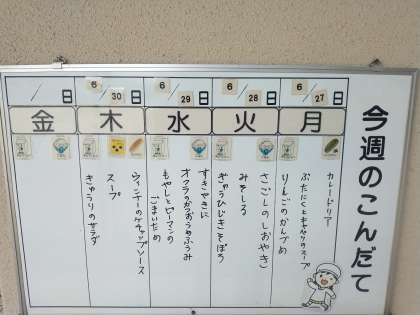 今週のこんだて
6/27日
月
カレードリア
ぶたにくとキャベツのスープ
りんごのかんづめ
6/28日
火
さごしのしおやき
みそしる
ぎゅうひじきそぼろ
6/29日
水
すきやきに
オクラのかつおうめふうみ
もやしとピーマンの
ごまいため
6/30日
木
ウィンナーのケチャップソース
スープ
きゅうりのサラダ
/日
金